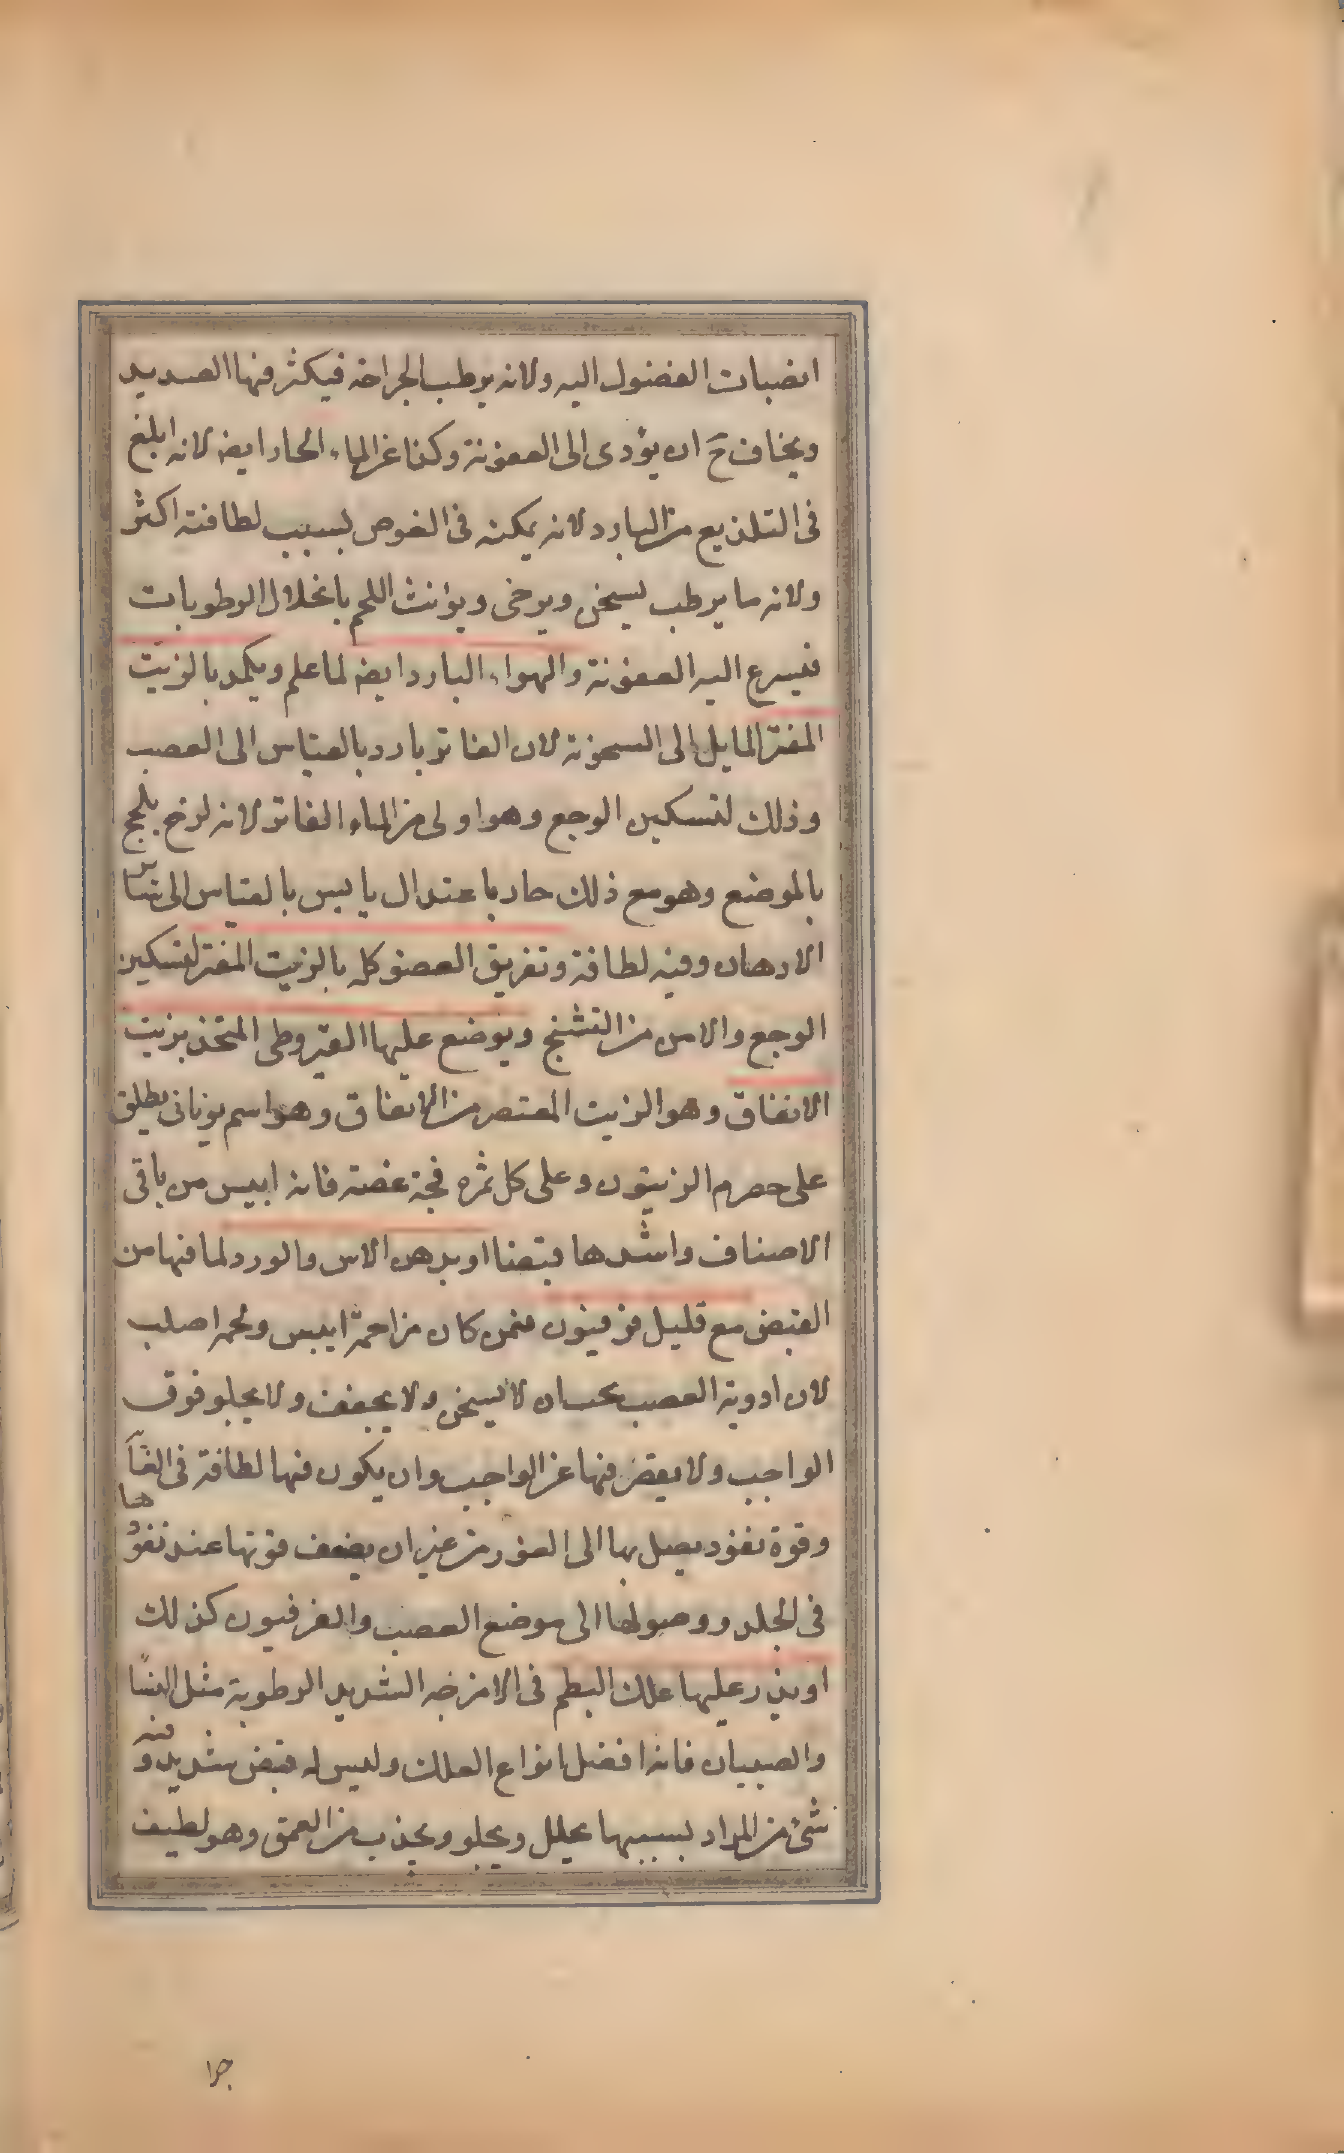 انضبات الفضول اليه ولانه يرطب الجراحة فيكثر فيها الصديد
ويخاف ح ان يؤدى الى العفونة وكذا عن الماء الحار ايضا لانه ابلغ
فى التلذيع من البارد لانه يمكنه فى الغوص بسبب لطافته اكثر
ولانه ما يرطب يسخن ويرخى ويؤنث اللحم بانحلال الرطوبات
فيسرع اليه العفونة والهواء البارد ايضا لما علم ويكمد بالزيت
المفتر المايل الى السخونة لان الفاتر بارد بالقياس الى العصب
وذلك لتسكين الوجع وهو اولى من الماء الفاتر لانه لزج يلحج
بالموضع وهو مع ذلك حار باعتدال يابس بالقياس الى سائر
الادهان وفيه لطافة وتغريق العضو كله بالزيت المفتر لتسكين
الوجع والامن من التشنج ويوضع عليها القيروطى المتخذ بزيت
الانفاق وهو الزيت المعتصر من الانفاق وهو اسم يونانى يطلق
على حصرم الزيتون وعلى كل ثمره فجة غضة فانه ايبس من باقى
الاصناف واشدها قبضا او بدهن الاس والورد لما فيها من
القبض مع قليل فرفيون فمن كان مزاجه ايبس ولحمه اصلب
لان ادوية العصب يجب ان لا يسخن ولا يجفف ولا يجلو فوق
الواجب ولا ينقص فيها عن الواجب وان يكون فيها لطافة فى الغآ
وقوة نفوذ يصل بها الى الغور من غير ان يضعف قوتها عند نفوذها
فى الجلد ووصولها الى موضع العصب والفرفيون كذلك
او يذر عليها علك البطم فى الامزجه الشديد الرطوبة مثل النسآ
والصبيان فانه افضل انواع العلك وليس له قبض شديد وفيه
شئ من المرار بسببها يحلل ويجلو ويجذب من العمق وهو لطيف
جدا